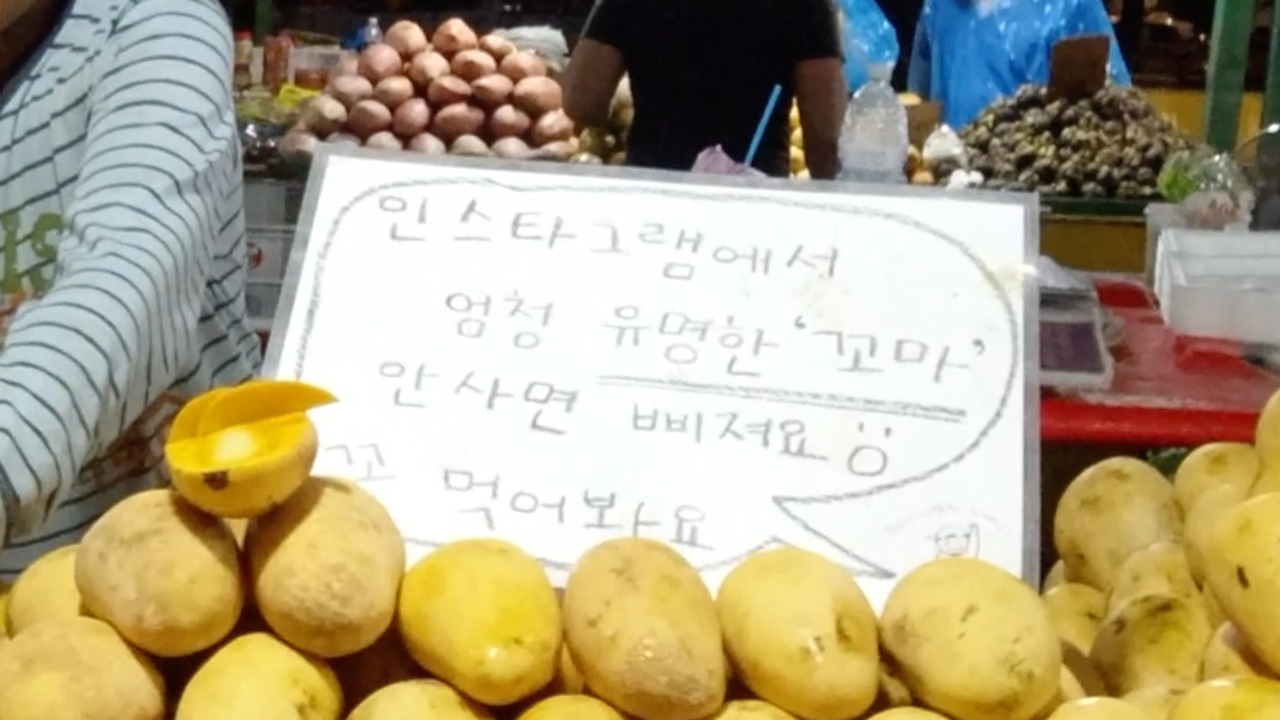 인스타그램에서
엄청 유명한 '꼬마'
안사면 삐져요
꼬 먹어봐요